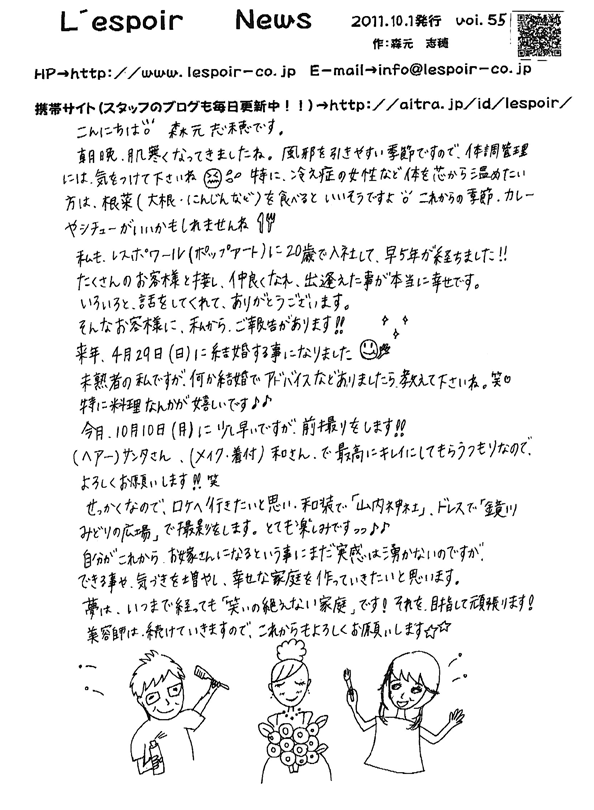 L´espoir News 2011.10.1発行 vol.55
作:森元 志穂
HP→http://www.lespoir-co.jp E-mail→info@lespoir-co.jp
携帯サイト(スタッフのブログも毎日更新中!!)→http://aitra.jp/id/lespoir/
こんにちは 森元志穂です。
朝晩、肌寒くなってきましたね。風邪を引きやすい季節ですので、体調管理
には、気をつけて下さいね 特に、冷え症の女性など体を芯から温めたい
方は、根菜(大根・にんじんなど)を食べると いいそうですよ これからの季節、カレー
やシチューがいいかもしれませんね
私も、レスポワール(ポップアート)に20歳で入社して、早5年が経ちました!!
たくさんのお客様と接し、仲良くなれ、出逢えた事が本当に幸せです。
いろいろと、話をしてくれて、ありがとうございます。
そんなお客様に、私から、ご報告があります!!
来年、4月29日(日)に結婚する事になりました
未熟者の私ですが、何か結婚でアドバイスなどありましたら、教えて下さいね。笑
特に料理なんかが嬉しいです♪♪
今月、10月10日(月)に少し早いですが、前撮りをします!!
(ヘアー)サンタさん、(メイク・着付)和さん、で最高にキレイにしてもらうつもりなので、
よろしくお願いします!! 笑
せっかくなので、ロケへ行きたいと思い、和装で「山内神社」、ドレスで「鏡川
みどりの広場」で撮影をします。とても楽しみですっっ♪♪
自分がこれから、お嫁さんになるという事にまだ実感は湧かないのですが、
できる事や、気づきを増やし、幸せな家庭を作っていきたいと思います。
夢は、いつまで経っても「笑いの絶えない家庭」です!それを、目指して頑張ります!
美容師は、続けていきますので、これからもよろしくお願いします☆☆